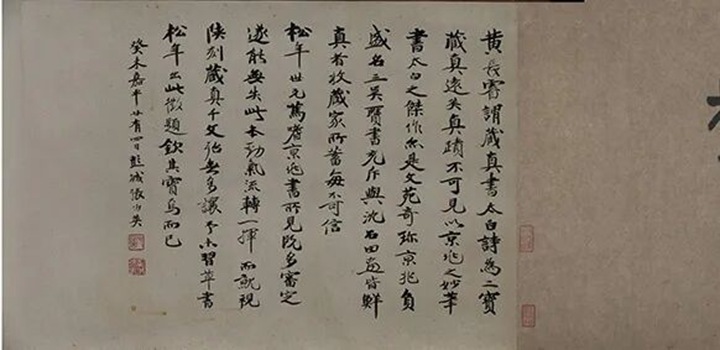 黄長睿謂藏真書太白詩為二寶
藏真遠矣真蹟不可見以京兆之妙筆
書太白之傑作亦是文苑奇珍京兆負
盛名三吳贋書充斥與沈石田畫皆鮮
真者收藏家所蓄每不可信
松年世兄篤嗜京兆書所見既多審定
遂能無失此本勁氣流轉一揮而就視
陝刻藏真千文佁無多讓予不習草書
松年出此徵題欽其寶焉而已
癸未嘉平廿有四日彭城張少英